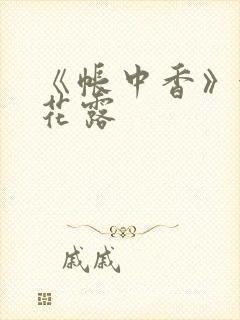 《帐中香》
花露
戚戚